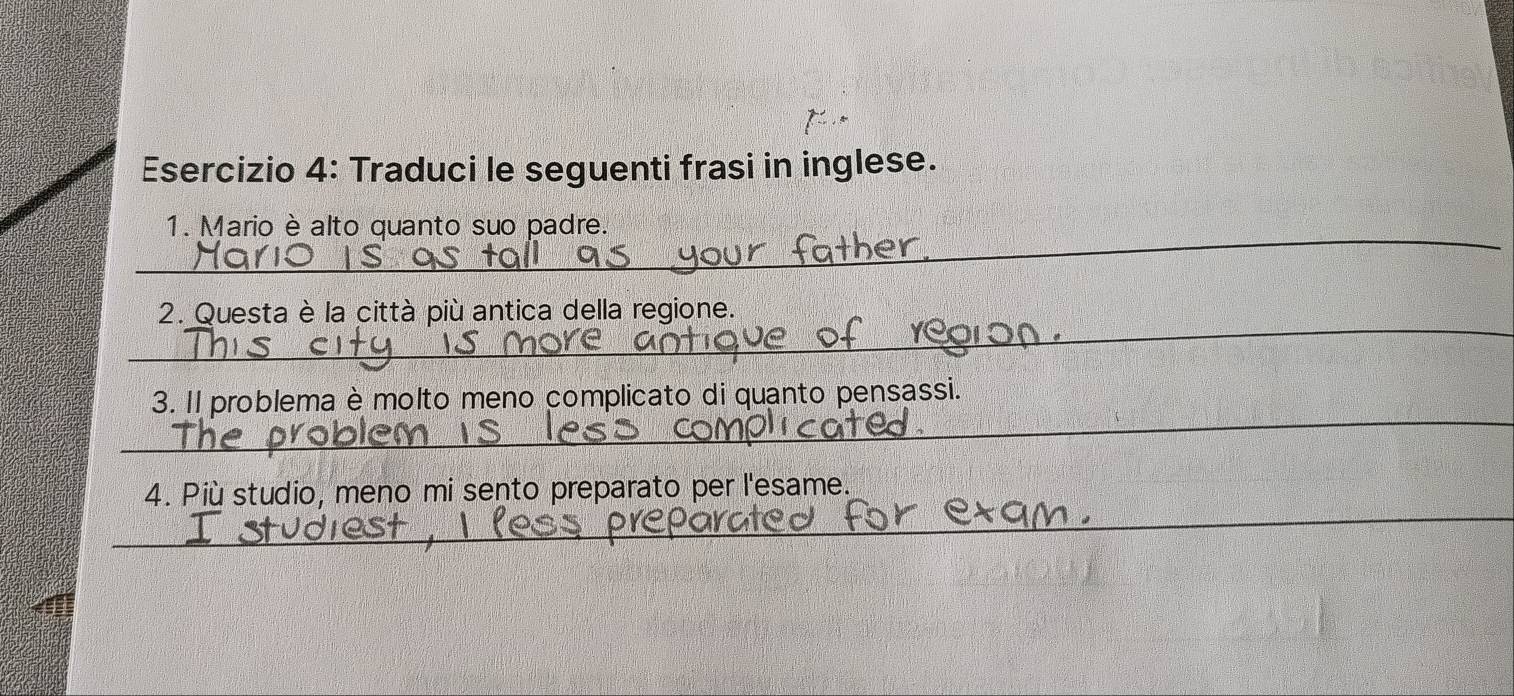 Esercizio 4: Traduci le seguenti frasi in inglese.
1. Mario è alto quanto suo padre.
Mario is as tall as your father.
2. Questa è la città più antica della regione.
This city is more antique of region.
3. Il problema è molto meno complicato di quanto pensassi.
The problem is less complicated.
4. Più studio, meno mi sento preparato per l'esame.
I studiest, I less preparated for exam.